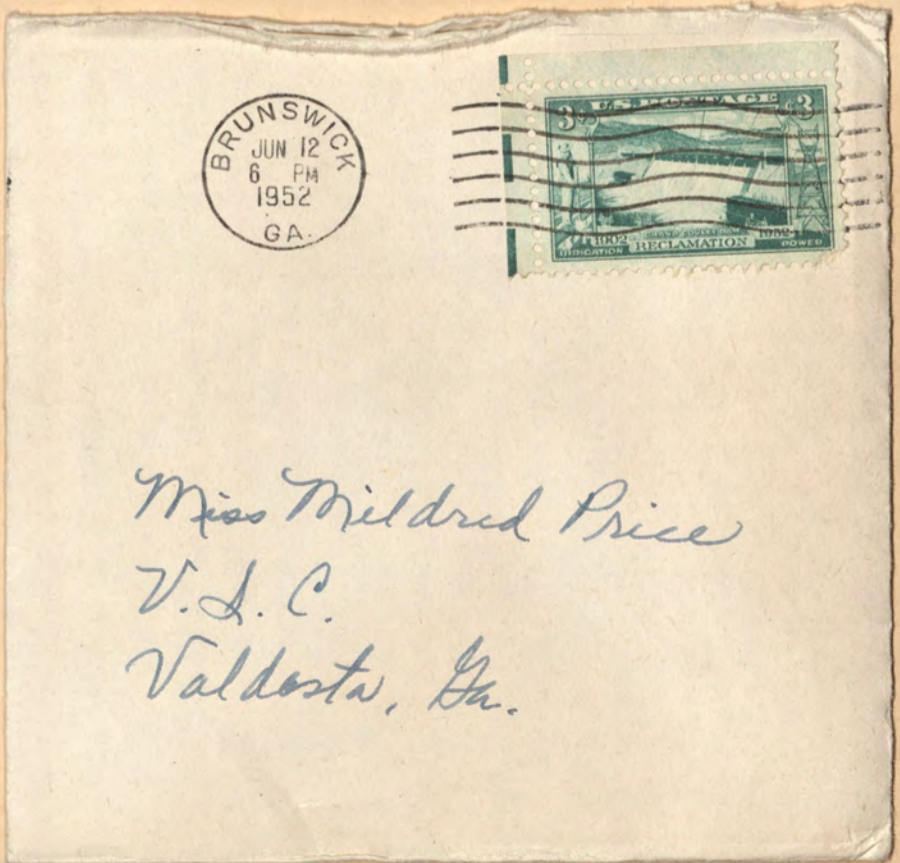 BRUNSWICK
JUN 12
6 PM
1952
GA.
3¢ U.S. POSTAGE ¢3
GRAND COULEE DAM
1902 RECLAMATION 1952
IRRIGATION POWER
Miss Mildred Price
V. S. C.
Valdosta, Ga.